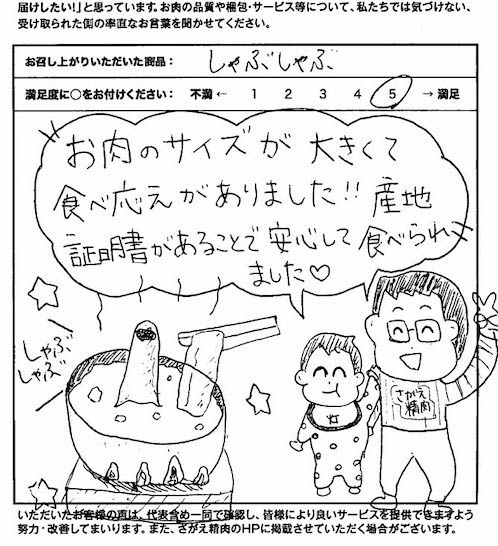 届けしたい!」と思っています。お肉の品質や梱包・サービス等について、私たちでは気づけない、
受け取られた側の率直なお言葉を聞かせてください。
お召し上がりいただいた商品： しゃぶしゃぶ
満足度に○をお付けください： 不満 ← 1 2 3 4 5 → 満足
お肉のサイズが大きくて
食べ応えがありました!! 産地
証明書があることで安心して食べられ
ました♡
しゃぶ
しゃぶ
さがえ
精肉
いただいたお客様の声は、代表含め一同で確認し、皆様により良いサービスを提供できますよう
努力・改善してまいります。また、さがえ精肉のHPに掲載させていただく場合がございます。